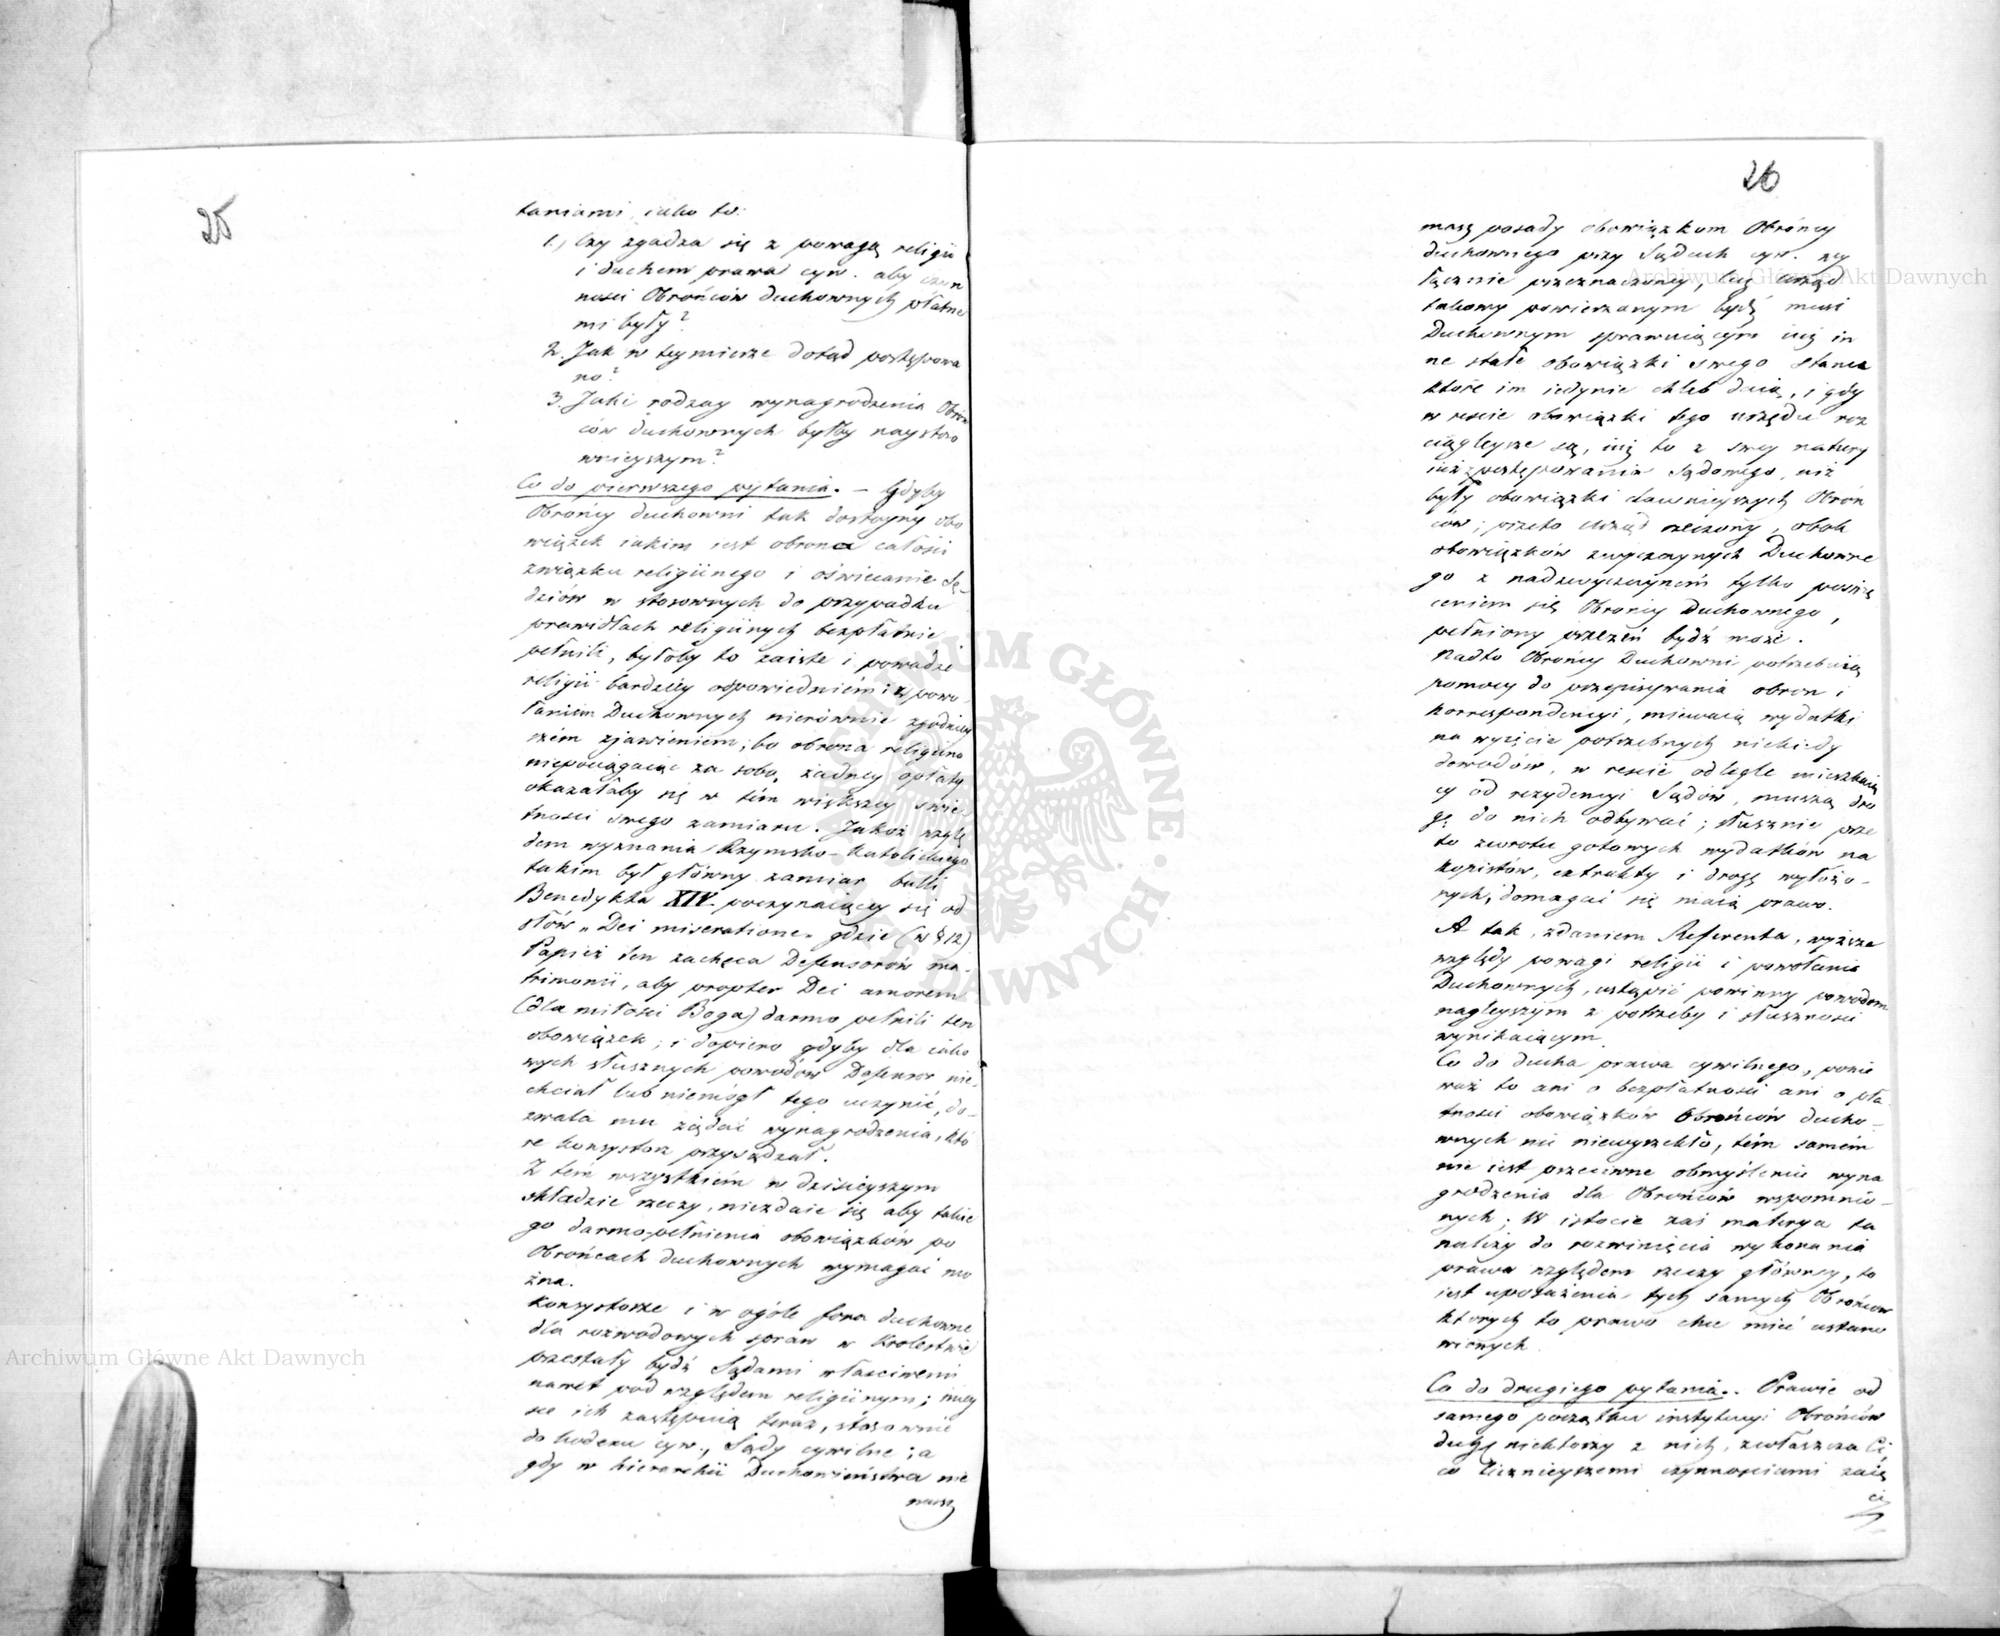 25
taniami, iako to:
1.) Czy zgadza się z powagą religii
i duchem prawa cyw. aby czyn
ności Obrońców duchownych płatne
mi były?
2. Jak w tey mierze dotąd postępowa
no?
3. Jaki rodzay wynagrodzenia Obroń
ców duchownych byłby naystoso
wnieyszym?
Co do pierwszego pytania. – Gdyby
Obrońcy duchowni tak dostoyny obo
wiązek iakim iest obrona całości
związku religiinego i oświecanie Sę-
dziów w stosownych do przypadku
prawidłach religiinych bezpłatnie
pełnili, byłoby to zaiste i powadze
religii bardziey odpowiedniém i z powo-
łaniem Duchownych nierównie zgodniey
szém zjawieniem; bo obrona religiina
niepociągaiąc za sobą żadney opłaty
okazałaby się w tém większey świe-
tności swego zamiaru. Jakoż wzglę
dem wyznania Rzymsko-Katolickiego
takim był główny zamiar bulli
Benedykta XIV. poczynaiącey się od
słów „Dei miseratione„ gdzie (w § 12)
Papież ten zachęca Defensorów ma-
trimonii, aby propter Dei amorem
(dla miłości Boga) darmo pełnili ten
obowiązek; i dopiero gdyby dla iako
wych słusznych powodów Defensor nie-
chciał lub niemógł tego uczynić, do-
zwala mu żądać wynagrodzenia, któ
re konsystorz przysądzał.
Z tém wszystkiém w dzisieyszym
składzie rzeczy, niezdaie się aby takie
go darmopełnienia obowiązków po
Obrońcach duchownych wymagać mo
żna.
Konsystorze i w ogóle fora duchowne
dla rozwodowych spraw w Krolestwie
przestały bydź Sądami właściwemi
nawet pod względem religiinym; miey
sce ich zastępuią teraz, stosownie
do kodexu cyw., Sądy cywilne; a
gdy w hierarchii Duchowieństwa nie
masz
26
masz posady obowiązkom Obrońcy
duchownego przy Sądach cyw. wy
łącznie przeznaczoney, lecz urząd
takowy powierzanym bydź musi
Duchownym sprawuiącym iuż in
ne stałe obowiązki swego stanu
które im iedynie chleb daią, i gdy
w reście obowiązki tego urzędu roz
ciągleysze są, iuż to z swey natury
iuż z postępowania Sądowego, niż
były obowiązki dawnieyszych Obroń
ców; przeto urząd rzeczony, obok
obowiązków zwyczaynych Duchowne
go z nadzwyczaynem tylko poświę
ceniem się Obrońcy Duchownego,
pełniony przezeń bydź może.
Nadto Obrońcy Duchowni potrzebuią
pomocy do przepisywania obron i
korrespondencyi, miewaią wydatki
na wyięcie potrzebnych niekiedy
dowodów, w reście odlegle mieszkaią
cy od rezydencyi Sądów, muszą dro
gę do nich odbywać; słusznie prze
to zwrotu gotowych wydatków na
kopistów, extrakty i drogę wyłożo-
nych, domagać się maią prawo.
A tak, zdaniem Referenta, wyższe
względy powagi religii i powołania
Duchownych, ustąpić powinny powodom
nagleyszym z potrzeby i słuszności
wynikaiącym.
Co do ducha prawa cywilnego, ponie
waż to ani o bezpłatności ani o pła-
tności obowiązków Obrońców ducho-
wnych nic niewyrzekło, tém samém
nie iest przeciwne obmyśleniu wyna
grodzenia dla Obrońców wspomnio-
nych; W istocie zaś materya ta
należy do rozwinięcia wykonania
prawa względem rzeczy główney, to
iest uposażenia tych samych Obrońców
których to prawo chce mieć ustano
wionych.
Co do drugiego pytania. Prawie od
samego początku instytucyi Obrońców
duch. niektórzy z nich, zwłaszcza Ci,
co licznieyszemi czynnościami zaię
ci
Archiwum Główne Akt Dawnych
Archiwum Główne Akt Dawnych
ARCHIWUM GŁÓWNE AKT DAWNYCH